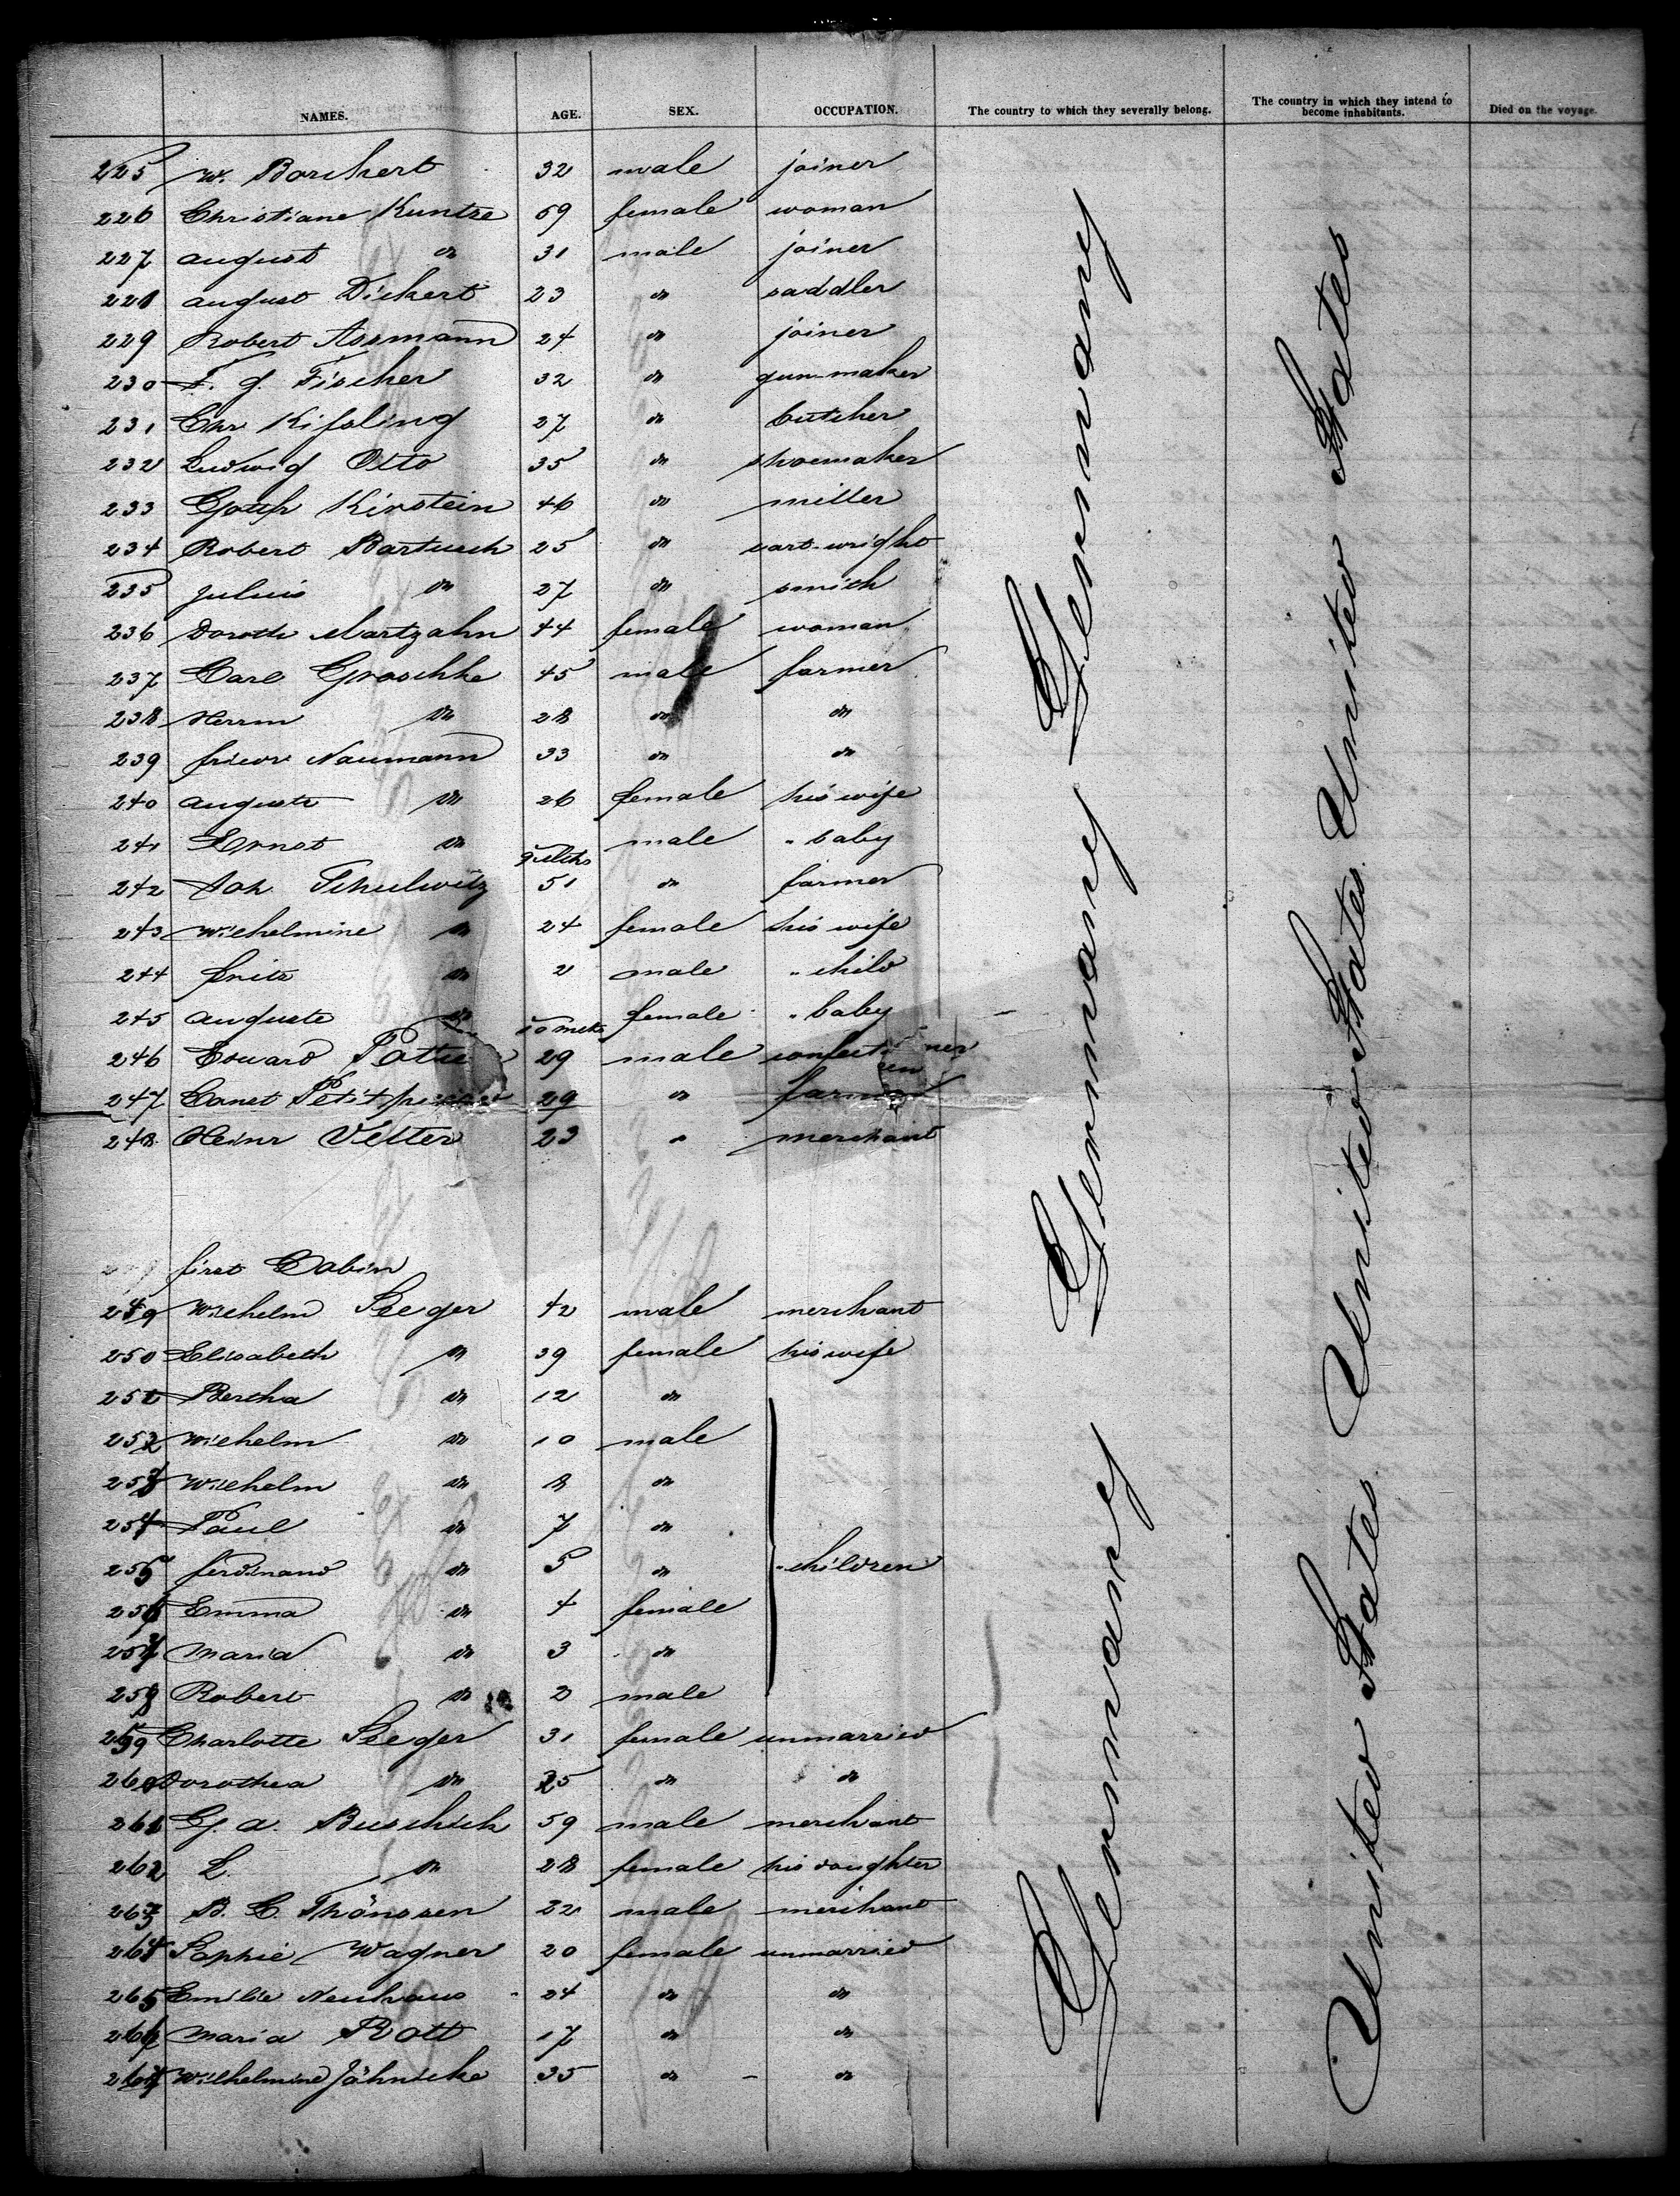 NAMES. AGE. SEX. OCCUPATION. The country to which they severally belong. The country in which they intend to become inhabitants. Died on the voyage.
225 W. Borchert 32 male joiner
226 Christiane Kuntze 59 female woman
227 August do 31 male joiner
228 August Dickert 23 do saddler
229 Robert Assmann 24 do joiner
230 F. G. Fischer 32 do gun-maker
231 Chr Kißling 27 do butcher
232 Ludwig Otto 35 do shoemaker
233 Kirstein 46 do miller
234 Robert Bartusch 25 do cart-wright
235 Julius do 27 do smith
236 Doroth Martzahn 44 female woman
237 Carl Groschke 45 male farmer
238 Herrm do 28 do do
239 friedr Naumann 33 do do
240 Auguste do 26 female his wife
241 Ernst do 9 mths male " baby
242 Joh Schulwitz 51 do farmer
243 Wilhelmine do 24 female his wife
244 fritz do 2 male " child
245 Auguste do 10 mths female " baby
246 Edward 29 male confectioner
247 29 do farmer
248 Heinr Vetter 23 " merchant
first Cabin
249 Wilhelm Seeger 42 male merchant
250 Elisabeth do 39 female his wife
251 Bertha do 12 do
252 Wilhelm do 10 male
253 Wilhelm do 8 do
254 Paul do 7 do
255 ferdinand do 5 do " children
256 Emma do 4 female
257 Maria do 3 do
258 Robert do 2 male
259 Charlotte Seeger 31 female unmarried
260 Dorothea do 25 do do
261 G. A. Buschick 59 male merchant
262 L. do 28 female his daughter
263 B. C. Thönssen 22 male merchant
264 Sophie Wagner 20 female unmarried
265 Emilie Neuhaus 24 do do
266 Maria Rott 17 do do
267 Wilhelmine Jähnicke 35 do do
Germany Germany Germany Germany
United States United States United States